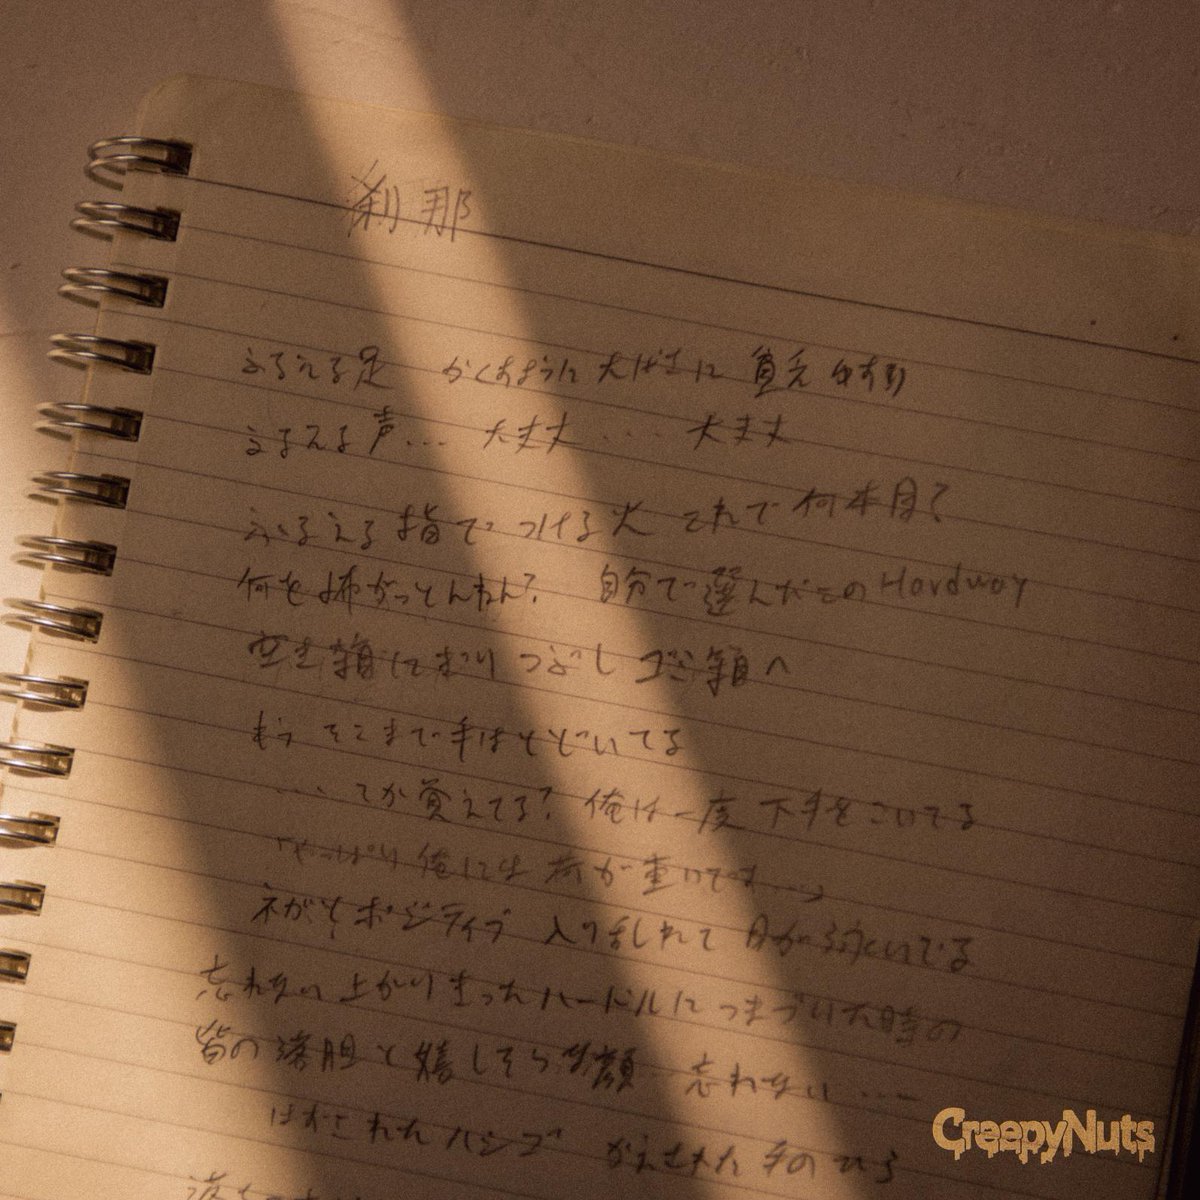 刹那
ふるえる足 かくすように大げさに貧乏ゆすり
ふるえる声…. 大丈夫 .... 大丈夫
ふるえる指でつける火 これで何本目?
何を怖がっとんねん? 自分で選んだこのHardway
空き箱にぎりつぶしゴミ箱へ
もうそこまで手はとどいてる
.... てか覚えてる? 俺は一度下手をこいてる
「やっぱり俺には荷が重いです....」
ネガとポジティブ 入り乱れて
忘れない上がりきったハードルにつまづいた時の
皆の落胆と嬉しそうな顔 忘れない....
はずされたハシゴ かえされた手のひら
CreepyNuts